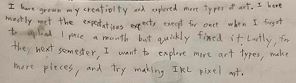 I have grown my creativity and explored more types of art. I have
mostly met the expectations expects except for once when I forgot
to upload 1 piece a month but quickly fixed it. Lastly, for
the next semester, I want to explore more art types, make
more pieces, and try making IRL pixel art.